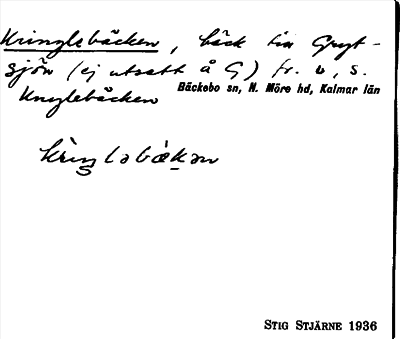 Kringlebäcken, bäck till Gryt-
sjön (ej utsatt å G) fr. v, s.
Bäckebo sn, N. Möre hd, Kalmar län
Kringlebäcken
STIG STJÄRNE 1936